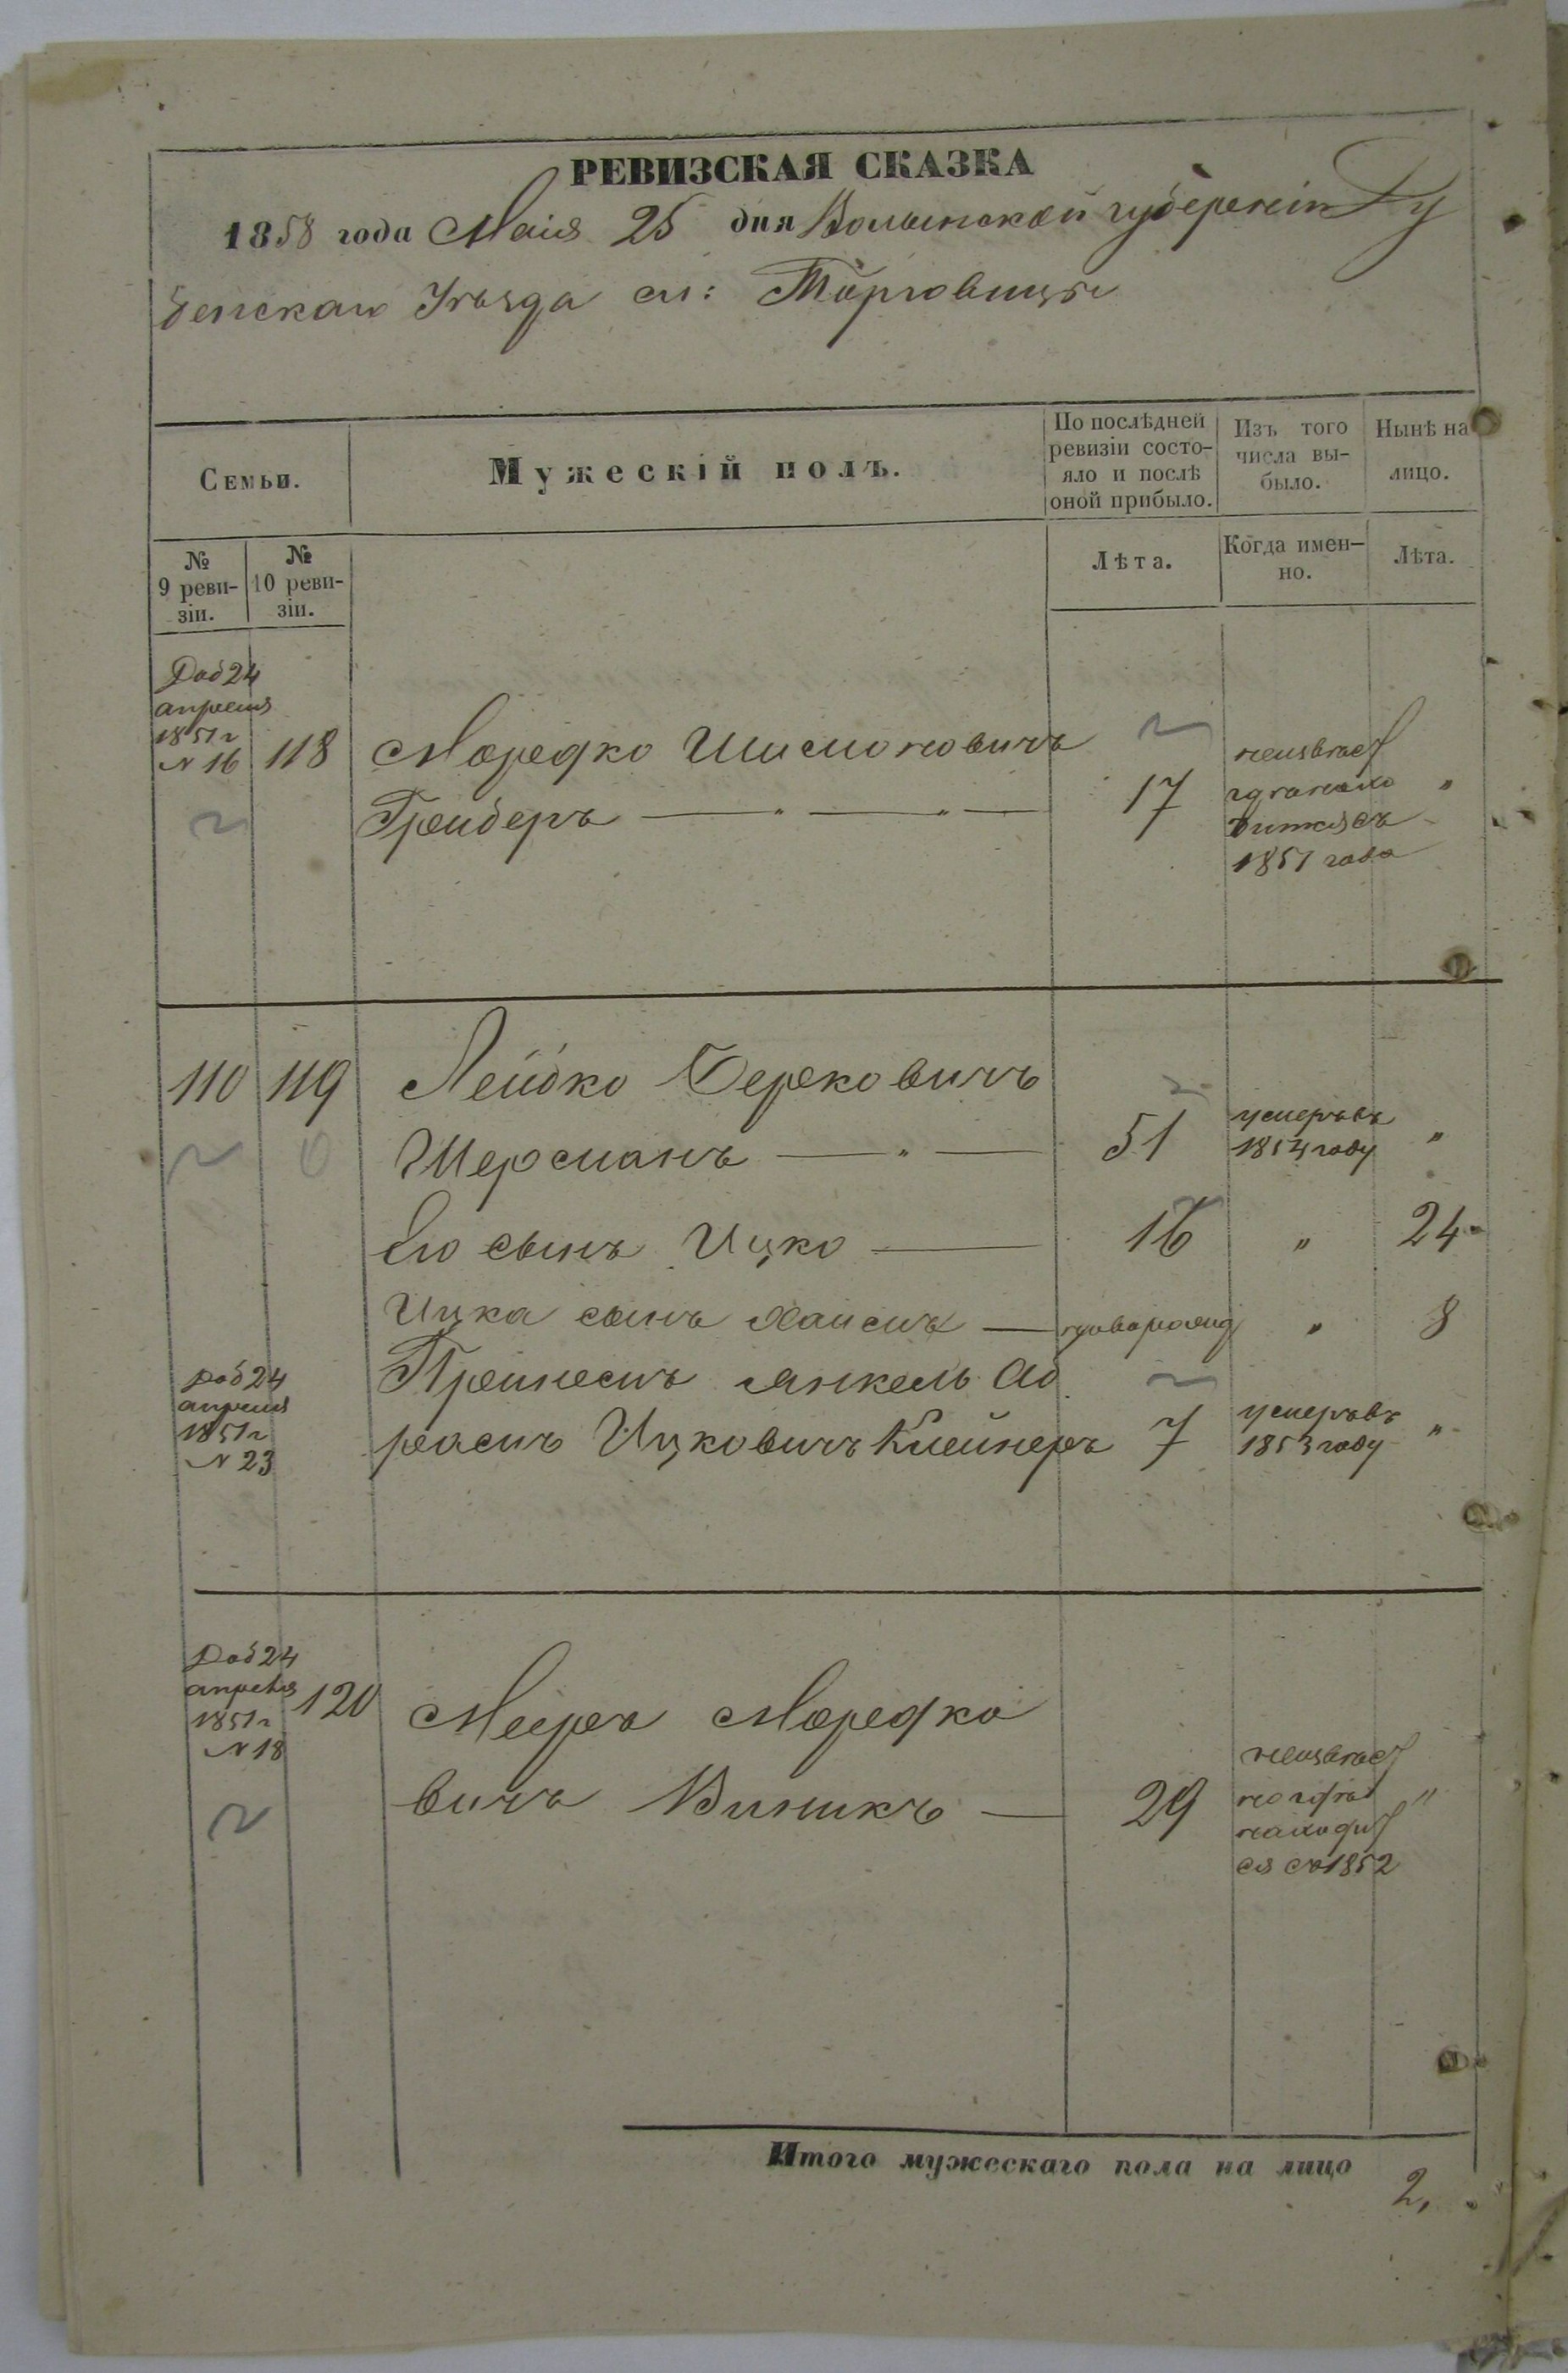 РЕВИЗСКАЯ СКАЗКА
1858 года Маія 25 дня Волынской губерніи Ду
бенскаго Уѣзда м: Торговицы
Семьи.
Мужескій полъ.
По послѣдней ревизіи состо-
яло и послѣ оной прибыло.
Изъ того числа вы-
было.
Нынѣ на лицо.
№ 9 реви-
зіи.
№ 10 реви-
зіи.
Лѣта.
Когда имен-
но.
Лѣта.
Доб 24
апреля
1851 г
N 16
118
Мордко Шимоновичъ
Грейберъ
17
неизвест
1851 года
"
110
119
Лейбко Берковичъ
Шерманъ
51
умеръ въ
1854 году
"
Его сынъ Ицко
16
"
24
Ицка сынъ Хаимъ
"
8
Доб 24
апреля
1851 г
N 23
Янкель Аб
рамъ Ицковичъ Клейнеръ
7
умеръ въ
1853 году
"
Доб 24
апреля
1851 г
N 18
120
Меръ Мордко
вичъ Виникъ
29
неизвест
но гдѣ
находит
ся съ 1852
"
Итого мужескаго пола на лицо
2,